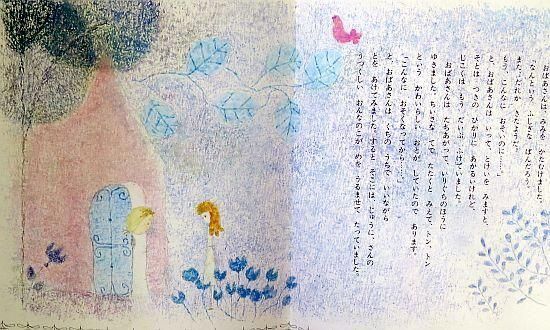 おばあさんは、みみを かたむけました。
「なんという ふしぎな ばんだろう。
また、だれか きたようだ。
もう、こんなに おそいのに……」
と、おばあさんは いって、とけいを みますと、
そとは、つきの ひかりに あかるいけれど、
じこくは もう だいぶ ふけていました。
おばあさんは たちあがって、いりぐちのほうに
ゆきました。ちいさな てで、たたくと みえて、トン、トン
という かわいらしい おとが していたので あります。
「こんなに おそくなってから……」
と、おばあさんは くちの うちで いいながら
とを あけてみました。すると、そこには、じゅうに、さんの
うつくしい おんなのこが めを うるませて たっていました。